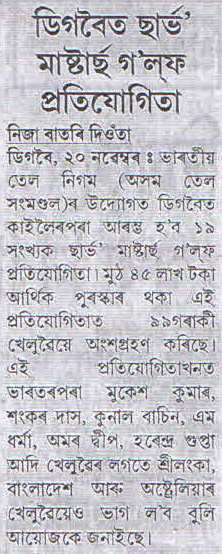 ডিগবৈত ছাৰ্ভ'
মাষ্টাৰ্ছ গ'ল্‌ফ
প্ৰতিযোগিতা
নিজা বাতৰি দিওঁতা
ডিগবৈ, ২০ নবেম্বৰ ঃ ভাৰতীয়
তেল নিগম (অসম তেল
সংমণ্ডল)ৰ উদ্যোগত ডিগবৈত
কাইলৈৰপৰা আৰম্ভ হ'ব ১৯
সংখ্যক ছাৰ্ভ' মাষ্টাৰ্ছ গ'ল্‌ফ
প্ৰতিযোগিতা। মুঠ ৪৫ লাখ টকা
আৰ্থিক পুৰস্কাৰ থকা এই
প্ৰতিযোগিতাত ৯৯গৰাকী
খেলুৱৈয়ে অংশগ্ৰহণ কৰিছে।
এই প্ৰতিযোগিতাখনত
ভাৰতৰপৰা মুকেশ কুমাৰ,
শংকৰ দাস, কুনাল বাচিন, এম
ধৰ্মা, অমৰ দ্বীপ, হৰেন্দ্ৰ গুপ্তা
আদি খেলুৱৈৰ লগতে শ্ৰীলংকা,
বাংলাদেশ আৰু অষ্ট্ৰেলিয়াৰ
খেলুৱৈয়েও ভাগ ল'ব বুলি
আয়োজকে জনাইছে।